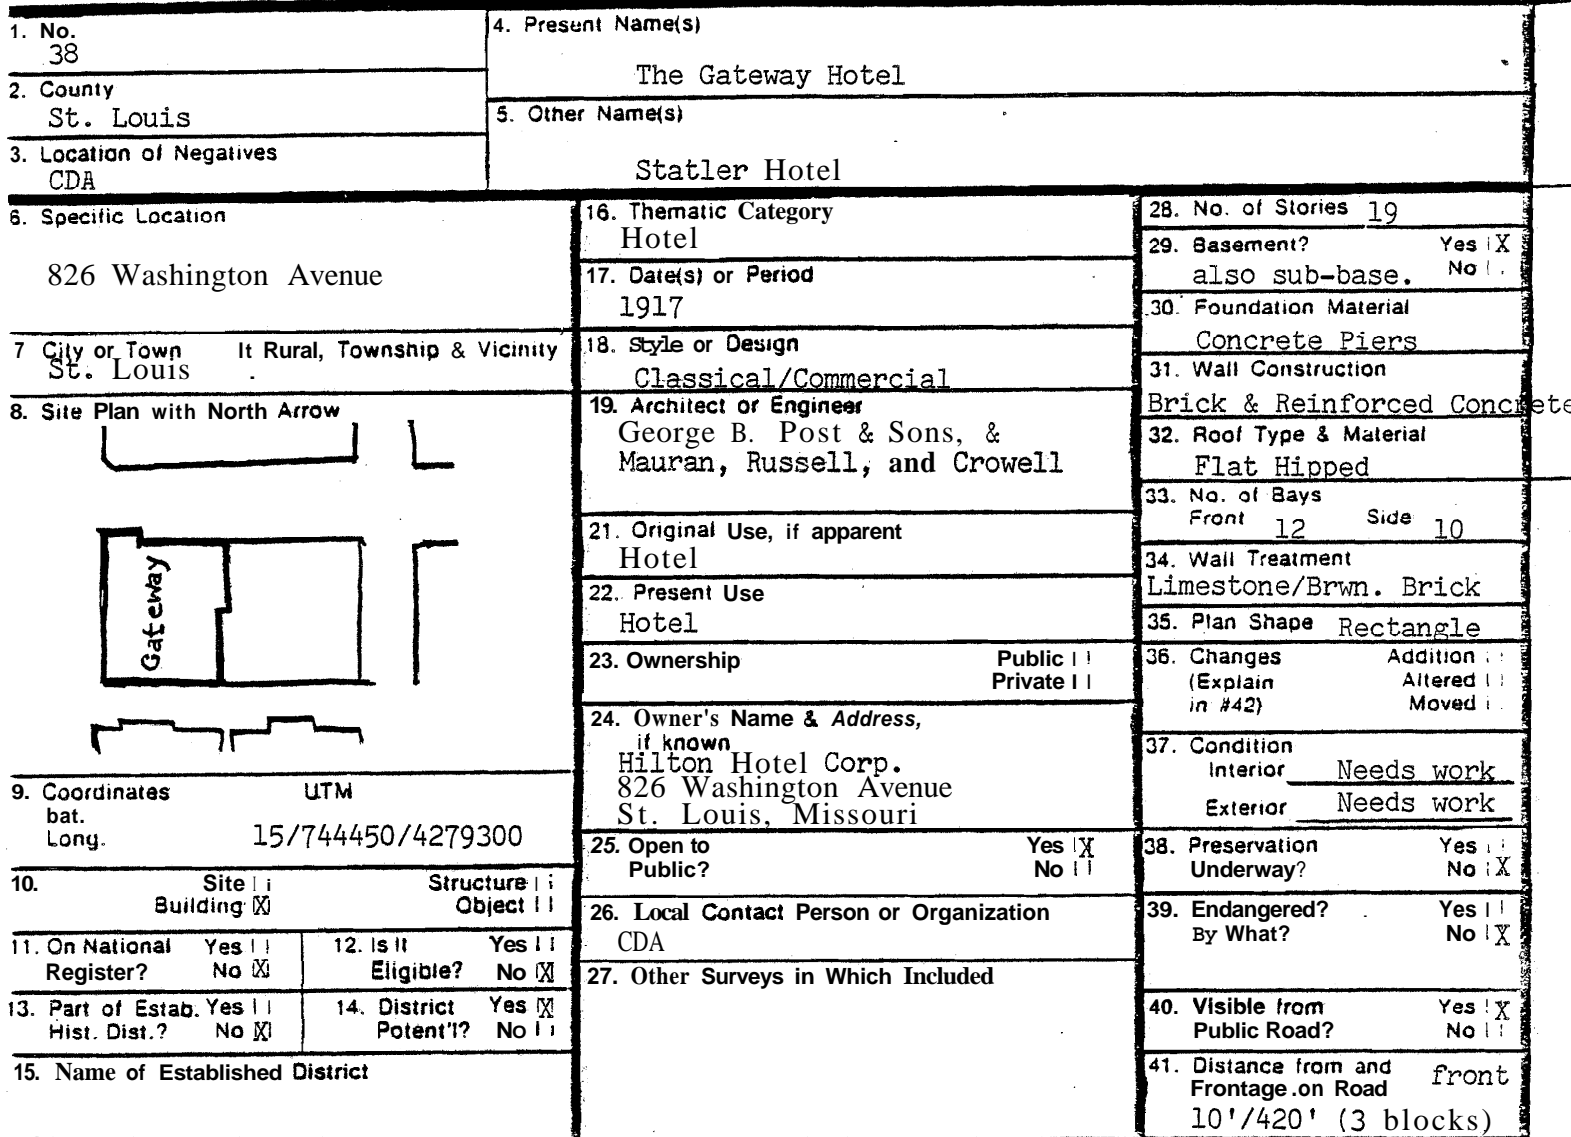 1. No.
38
2. County
St. Louis
3. Location of Negatives
CDA
4. Present Name(s)
The Gateway Hotel
5. Other Name(s)
Statler Hotel
6. Specific Location
826 Washington Avenue
7 City or Town It Rural, Township & Vicinity
St. Louis
8. Site Plan with North Arrow
Gateway
9. Coordinates UTM
bat.
Long.
15/744450/4279300
10. Site Structure
Building X Object
11. On National Register? Yes No X
12. Is It Eligible? Yes No X
13. Part of Estab. Hist. Dist.? Yes No X
14. District Potent'l? Yes X No
15. Name of Established District
16. Thematic Category
Hotel
17. Date(s) or Period
1917
18. Style or Design
Classical/Commercial
19. Architect or Engineer
George B. Post & Sons, &
Mauran, Russell, and Crowell
21. Original Use, if apparent
Hotel
22. Present Use
Hotel
23. Ownership Public
Private
24. Owner's Name & Address,
if known
Hilton Hotel Corp.
826 Washington Avenue
St. Louis, Missouri
25. Open to Yes X
Public? No
26. Local Contact Person or Organization
CDA
27. Other Surveys in Which Included
28. No. of Stories 19
29. Basement? Yes X
also sub-base. No
30. Foundation Material
Concrete Piers
31. Wall Construction
Brick & Reinforced Concrete
32. Roof Type & Material
Flat Hipped
33. No. of Bays
Front 12 Side 10
34. Wall Treatment
Limestone/Brwn. Brick
35. Plan Shape Rectangle
36. Changes Addition
(Explain Altered
in #42) Moved
37. Condition
Interior Needs work
Exterior Needs work
38. Preservation Yes
Underway? No X
39. Endangered? Yes
By What? No X
40. Visible from Yes X
Public Road? No
41. Distance from and front
Frontage.on Road
10'/420' (3 blocks)